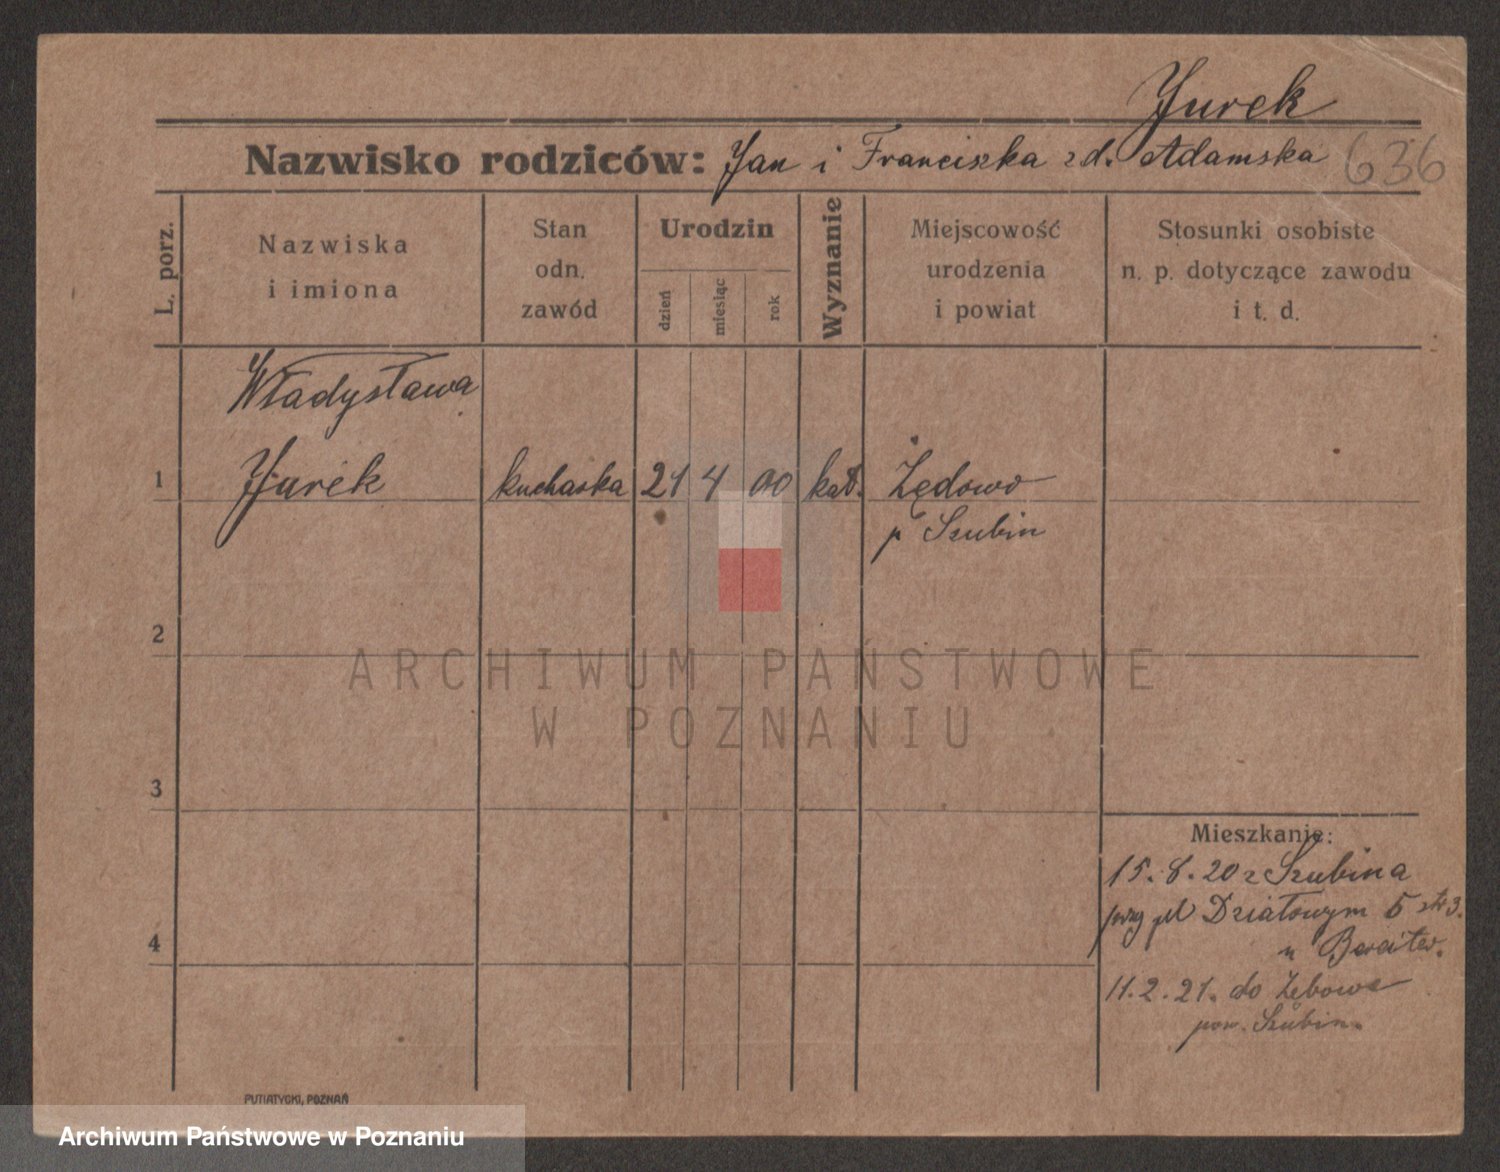 Jurek
Nazwisko rodziców: Jan i Franciszka zd. Adamska 636
L. porz.
Nazwiska
i imiona
Stan
odn.
zawód
Urodzin
dzień
miesiąc
rok
Wyznanie
Miejscowość
urodzenia
i powiat
Stosunki osobiste
n. p. dotyczące zawodu
i t. d.
Władysława
1 Jurek kucharka 21 4 00 kat. Żędowo
p Szubin
2
3
4
Mieszkanie:
15.8.20 z Szubina
przy pl Działowym 5
u
11.2.21. do
pow. Szubin.
PUTIATYCKI, POZNAŃ
ARCHIWUM PAŃSTWOWE
W POZNANIU
Archiwum Państwowe w Poznaniu